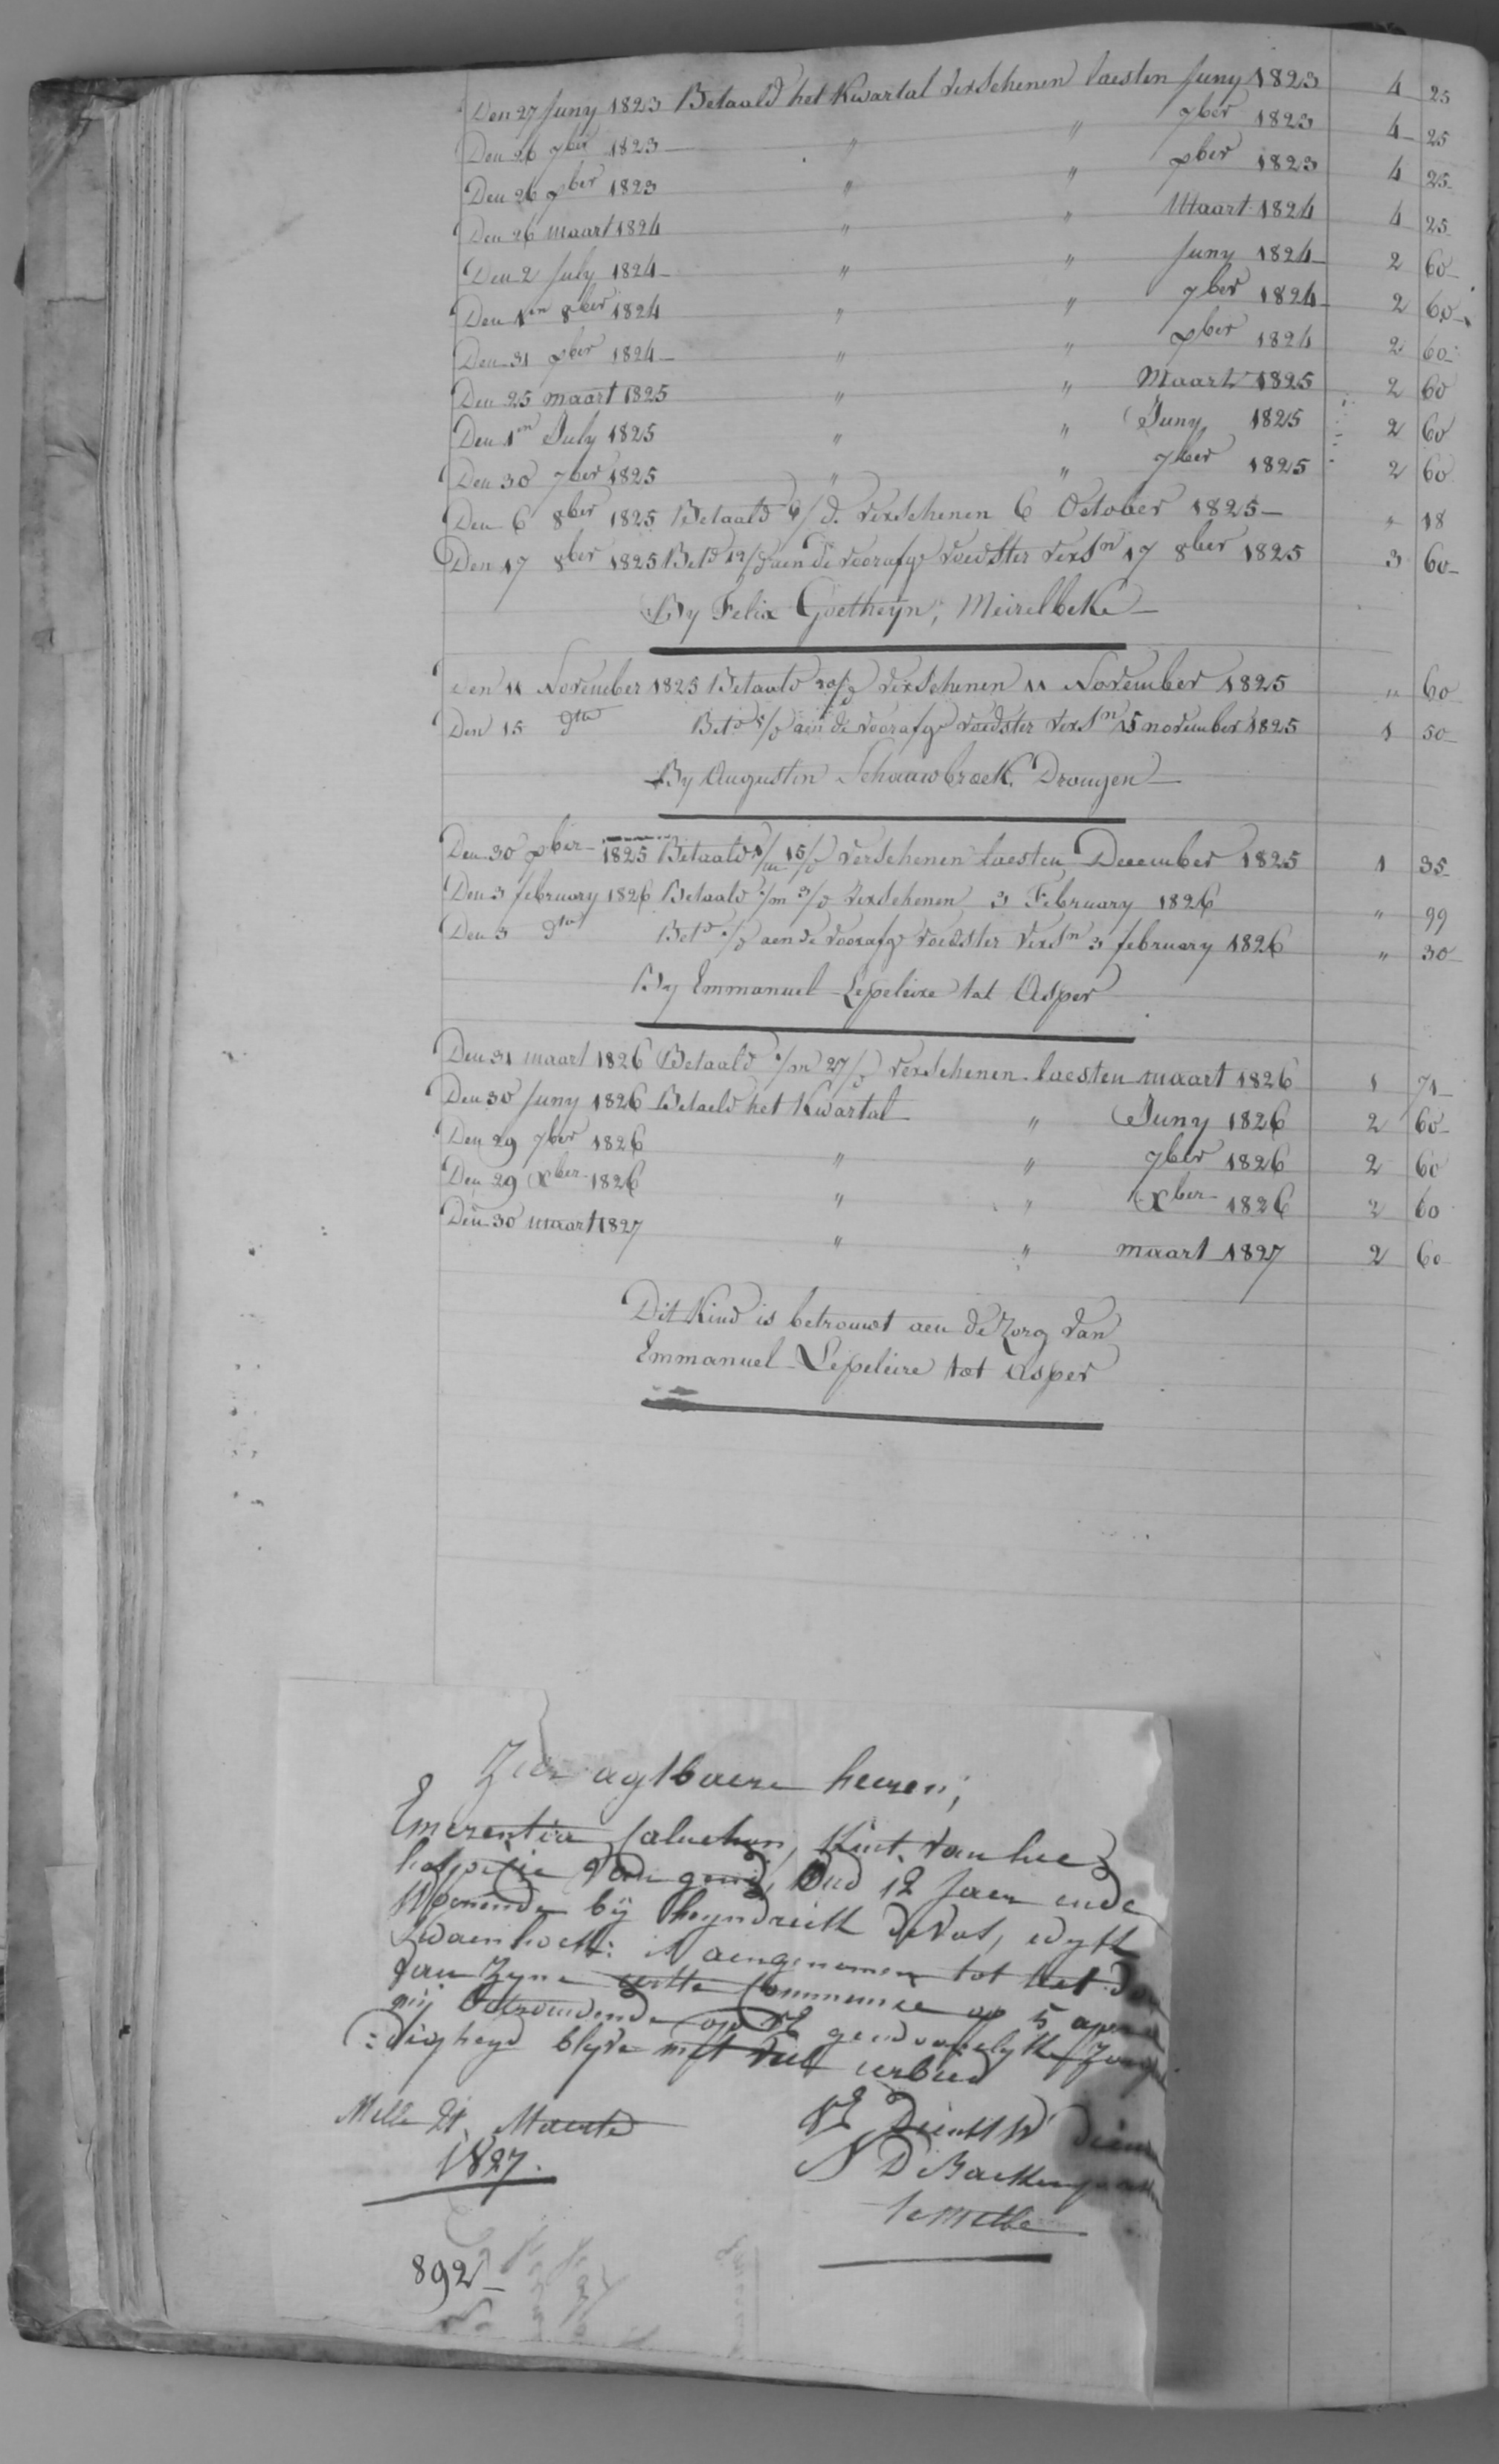 Den 27 Juny 1823 Betaald het Kwartal verschenen laesten Juny 1823 4 25
Den 26 7ber 1823 " " 7ber 1823 4 25
Den 26 xber 1823 " " xber 1823 4 25
Den 26 maart 1824 " " Maart 1824 4 25
Den 2 July 1824 " " Juny 1824 2 60
Den 1en 8ber 1824 " " 7ber 1824 2 60
Den 31 xber 1824 " " xber 1824 2 60
Den 25 maart 1825 " " Maart 1825 2 60
Den 1en July 1825 " " Juny 1825 2 60
Den 30 7ber 1825 " " 7ber 1825 2 60
Den 6 8ber 1825 Betaald 6/d. verschenen 6 October 1825 " 18
Den 17 8ber 1825 Betd 12/d aen de voorafge voedster versn 17 8ber 1825 3 60
By Felix Goetheyn, Meirelbeke
Den 11 November 1825 Betaald 20/d verschenen 11 November 1825 " 60
Den 15 dto Betd 5/d aen de voorafge voedster versn 15 november 1825 1 50
By Augustin Schauwbroek, Drongen
Den 30 xber 1825 Betaald 1/m 15/d verschenen laesten December 1825 1 35
Den 3 february 1826 Betaald 1/m 3/d verschenen 3 February 1826 " 99
Den 3 dto Betd 1/d aen de voorafge voedster versn 3 february 1826 " 30
By Emmanuel Lepeleire tot Asper
Den 31 maart 1826 Betaald 1/m 27/d verschenen laesten maart 1826 1 71
Den 30 Juny 1826 Betaeld het Kwartal " Juny 1826 2 60
Den 29 7ber 1826 " " 7ber 1826 2 60
Den 29 Xber 1826 " " Xber 1826 2 60
Den 30 maart 1827 " " maart 1827 2 60
Dit Kind is betrouwt aen de Zorg van
Emmanuel Lepeleire tot Asper
Zeer agtbaere heeren,
Emerentia Kint van hee
hospitie van gend, oud 12 Jaer ende
woonende bÿ heyndrick de Vos, wyk
Zwaenhoek: is aengenomen tot het
van Zyne eerste Communie op 5
mÿ betrouwende op UE
:digheyd blyve met veel eerbied
Melle 21 Maerte UE
1827. De
te Melle
892